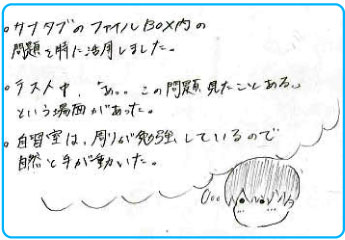 ・サブタブのファイルBOX内の
問題を特に活用しました。
・テスト中、「あ。。この問題、見たことある」
という場面があった。
・自習室は、周りが勉強しているので
自然と手が動いた。